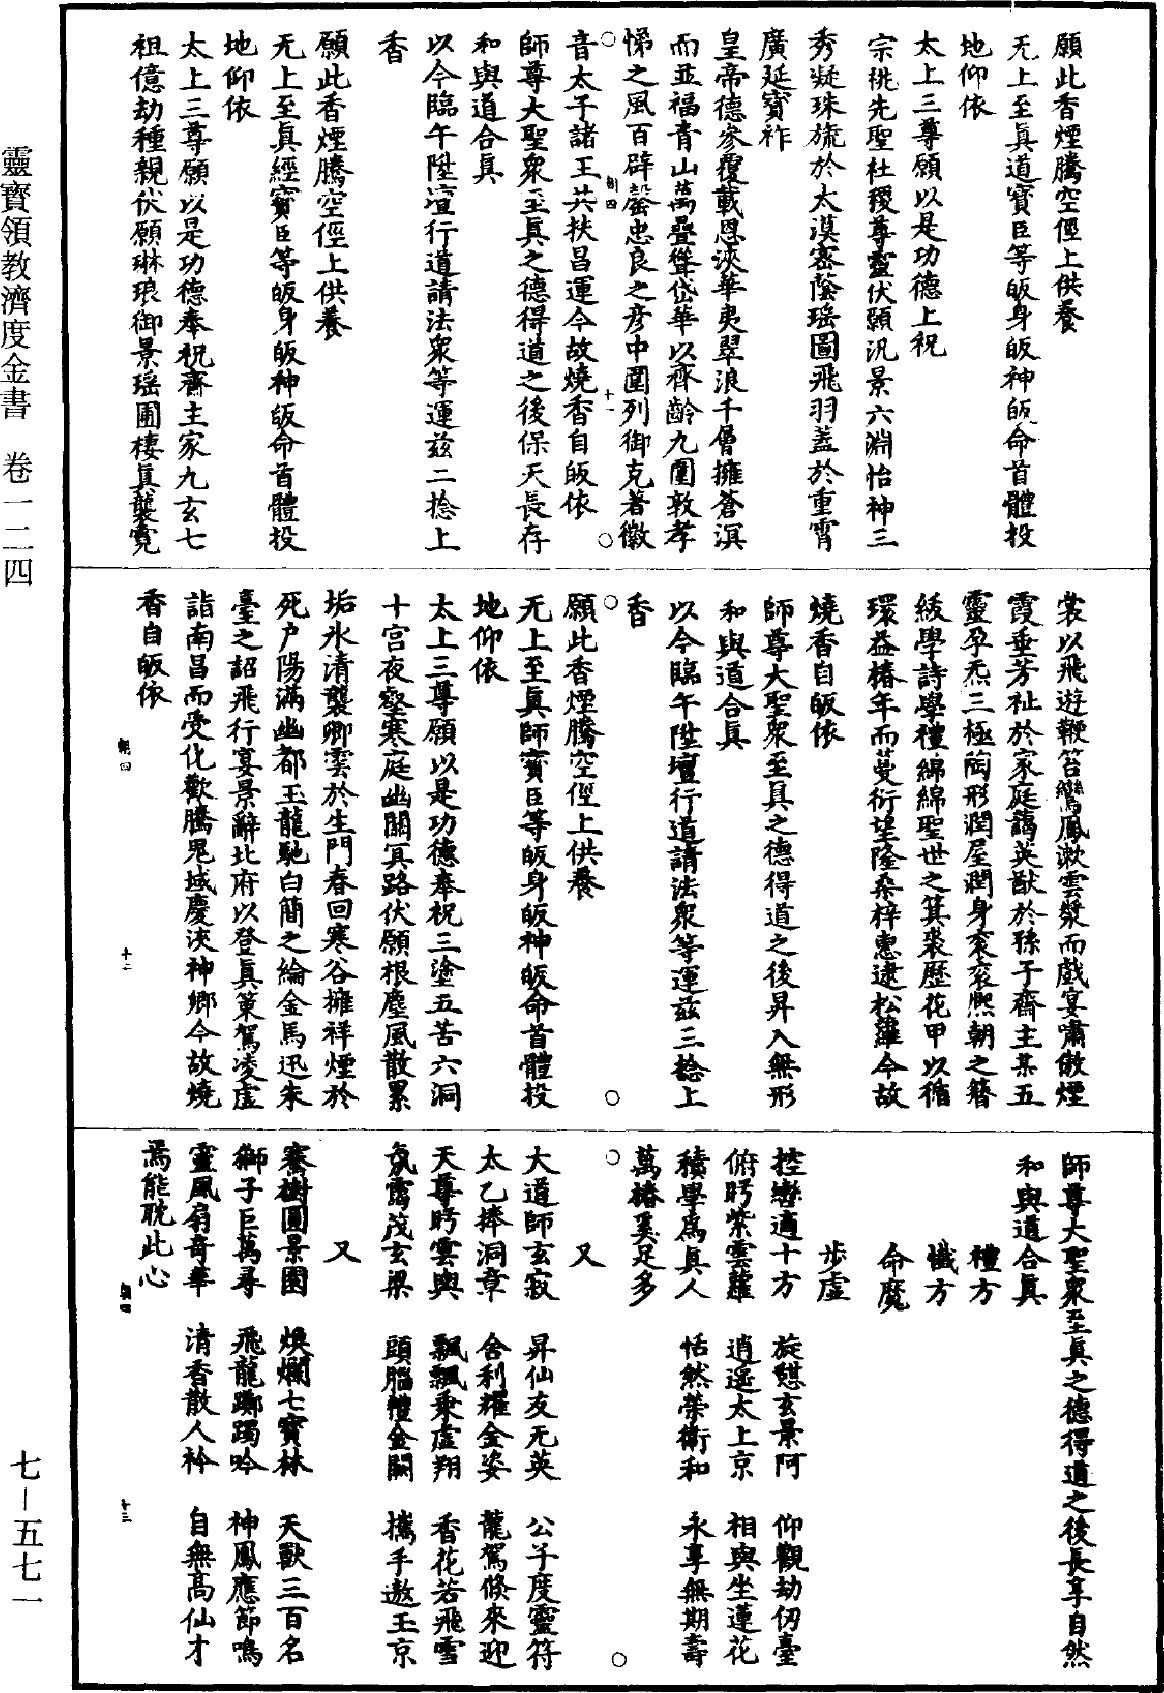 靈寶領教濟度金書　卷一二四
七—五七一
願此香煙騰空徑上供養
无上至眞道寶臣等皈身皈神皈命首體投
地仰依
太上三尊願以是功德上祝
宗祧先聖社稷尊靈伏願汎景六淵怡神三
秀凝珠旒於太漠密蔭瑤圖飛羽蓋於重霄
廣延寶祚
皇帝德參覆載恩浹華夷翠浪千層擁蒼溟
而並福青山萬疊聳岱華以齊齡九圍敦孝
悌之風百辟罄忠良之彥中圍列御克著徽
音太子諸王共扶昌運今故燒香自皈依
師尊大聖衆至眞之德得道之後保天長存
和與道合眞
以今臨午陞壇行道請法衆等運茲二捻上
香
願此香煙騰空徑上供養
无上至眞經寶臣等皈身皈神皈命首體投
地仰依
太上三尊願以是功德奉祝齋主家九玄七
祖億劫種親伏願琳琅御景瑤圃棲眞襲霓
裳以飛遊鞭笞鸞鳳漱雲漿而戲宴嘯傲煙
霞垂芳祉於家庭藹英猷於孫子齋主某五
靈孕炁三極陶形潤屋潤身衮衮熙朝之簪
紱學詩學禮綿綿聖世之箕裘歷花甲以循
環益椿年而蔓衍望隆桑梓惠逮松蘿今故
燒香自皈依
師尊大聖衆至眞之德得道之後昇入無形
和與道合眞
以今臨午陞壇行道請法衆等運茲三捻上
香
願此香煙騰空徑上供養
无上至眞師寶臣等皈身皈神皈命首體投
地仰依
太上三尊願以是功德奉祝三塗五苦六洞
十宮夜壑寒庭幽關冥路伏願根塵風散累
垢氷清襲卿雲於生門春回寒谷擁祥煙於
死户陽滿幽都玉龍馳白簡之綸金馬迅朱
臺之詔飛行宴景辭北府以登眞策駕凌虛
詣南昌而受化歡騰鬼域慶浹神鄉今故燒
香自皈依
師尊大聖衆至眞之德得道之後長享自然
和與道合眞
禮方
懺方
命魔
步虛
控轡適十方　旋憩玄景阿　仰觀劫仞臺
俯眄紫雲蘿　逍遥太上京　相與坐蓮花
積學爲眞人　恬然榮衛和　永享無期壽
萬椿奚足多
又
大道師玄寂　昇仙友无英　公子度靈符
太乙捧洞章　舍利耀金姿　龍駕倏來迎
天尊眄雲輿　飄飄乘虛翔　香花若飛雪
氛靄茂玄梁　頭腦禮金闕　攜手遨玉京
又
騫樹圓景園　煥爛七寶林　天獸三百名
獅子巨萬尋　飛龍躑躅吟　神鳳應節鳴
靈風扇奇華　清香散人衿　自無高仙才
焉能耽此心
朝四
十一
朝四
十二
朝四
十三